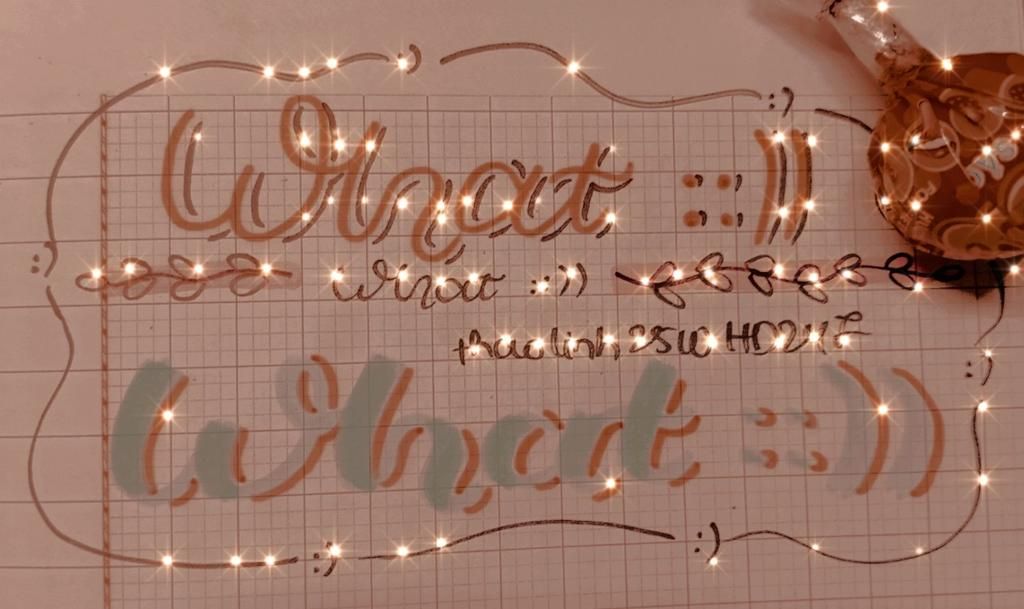 :)
:)
What ::))
:)
What :))
thaolinh25w HD24F
:)
What ::))
:)
:)